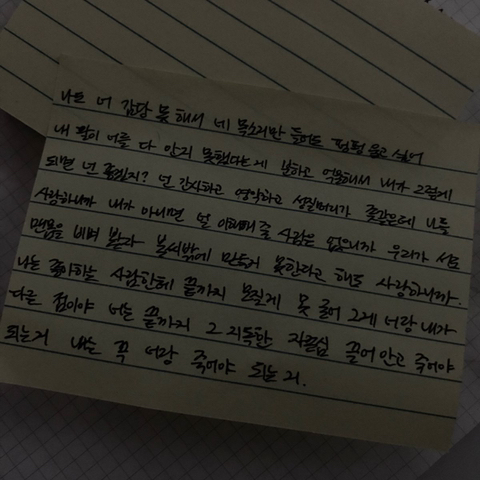 나는 너 감당 못 해서 네 목소리만 들어도 펑펑 울고 싶어
내 팔이 너를 다 안지 못했다는 게 분하고 억울해서 내가 그렇게
되면 넌 좋겠지? 넌 간사하고 영악하고 성질머리가 좆같은데 나를
사랑하니까 내가 아니면 널 이해해 줄 사람은 없으니까 우리가 서로
맨몸을 비벼 봤자 불시밖에 만들지 못한다고 해도 사랑하니까.
나는 좋아하는 사람한테 끝까지 모질게 못 굴어 그게 너랑 내가
다른 점이야 너는 끝까지 그 지독한 자존심 끌어안고 죽어야
되는거 나는 꼭 너랑 죽어야 되는 거.